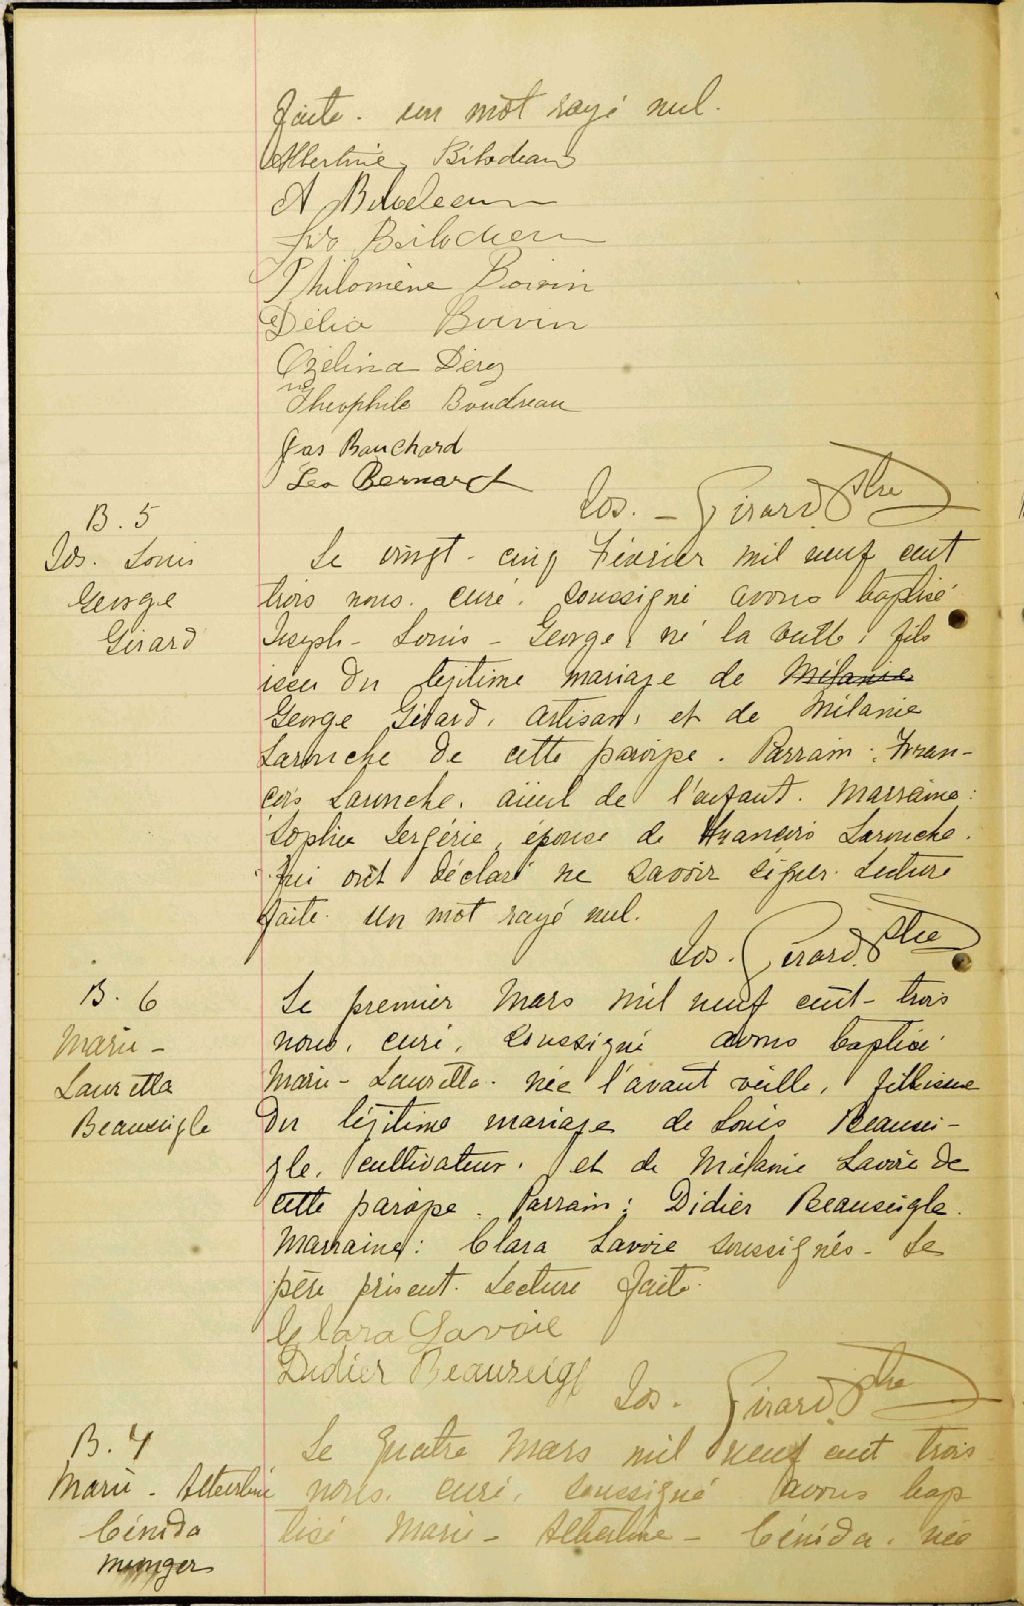 faite. un mot rayé nul.
Albertine Bilodeau
A Bilodeau
Ivo Bilodeau
Philomène Boivin
Délia Boivin
Ozélina Dérez
Theophile Boudreau
Jos Bouchard
Leo Bernard
Jos. - Girard Ptre
B. 5
Jos. Louis
George
Girard
Le vingt-cinq Février mil neuf cent
trois nous. curé. soussigné avons baptisé
Joseph - Louis - George, né la veille, fils
issu du légitime mariage de Mélanie
George Girard, artisan, et de Mélanie
Larouche de cette paroisse. Parrain: Fran-
çois Larouche, aïeul de l'enfant. Marraine:
Sophie Sergérie, épouse de François Larouche.
qui ont déclaré ne savoir signer. Lecture
faite. Un mot rayé nul.
Jos. Girard. Ptre
B. 6
Marie -
Lauretta
Beauseigle
Le premier Mars mil neuf cent-trois
nous, curé, soussigné avons baptisé
Marie - Lauretta. née l'avant veille, fille issue
du légitime mariage de Louis Beausei-
gle, cultivateur. et de Mélanie Lavoie de
cette paroisse. Parrain: Didier Beauseigle.
Marraine: Clara Lavoie soussignés - Le
père présent. Lecture faite.
Clara Lavoie
Didier Beauseigl
Jos. Girard Ptre
B. 7
Marie - Albertine
Cénida
Le quatre Mars mil neuf cent trois
nous, curé, soussigné avons bap
tisé Marie - Albertine - Cénida. née